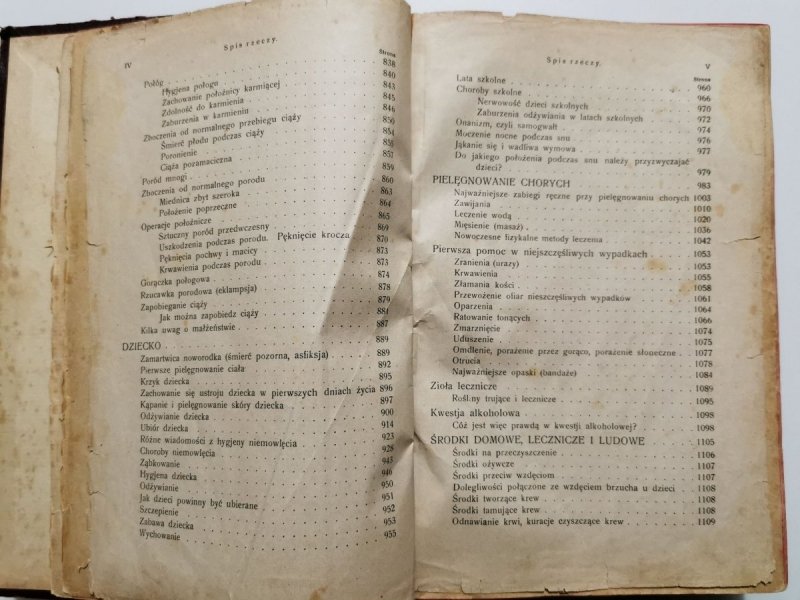 IV
Spis rzeczy.
Strona
Połóg 838
Hygjena połogu 840
Zachowanie położnicy karmiącej 843
Zdolność do karmienia 845
Zaburzenia w karmieniu 846
Zboczenia od normalnego przebiegu ciąży 850
Śmierć płodu podczas ciąży 854
Poronienie 855
Ciąża pozamaciczna 857
Poród mnogi 859
Zboczenia od normalnego porodu 860
Miednica zbyt szeroka 863
Położenie poprzeczne 864
Operacje położnicze 865
Sztuczny poród przedwczesny 869
Uszkodzenia podczas porodu. Pęknięcie krocza 870
Pęknięcia pochwy i macicy 873
Krwawienia podczas porodu 873
Gorączka połogowa 874
Rzucawka porodowa (eklampsja) 878
Zapobieganie ciąży 879
Jak można zapobiedz ciąży 881
Kilka uwag o małżeństwie 887
DZIECKO 889
Zamartwica noworodka (śmierć pozorna, asfiksja) 889
Pierwsze pielęgnowanie ciała 892
Krzyk dziecka 895
Zachowanie się ustroju dziecka w pierwszych dniach życia 896
Kąpanie i pielęgnowanie skóry dziecka 897
Odżywianie dziecka 900
Ubiór dziecka 914
Różne wiadomości z hygjeny niemowlęcia 923
Choroby niemowlęcia 928
Ząbkowanie 945
Hygjena dziecka 946
Odżywianie 950
Jak dzieci powinny być ubierane 951
Szczepienie 952
Zabawa dziecka 953
Wychowanie 955
Spis rzeczy.
V
Strona
Lata szkolne 960
Choroby szkolne 966
Nerwowość dzieci szkolnych 970
Zaburzenia odżywiania w latach szkolnych 972
Onanizm, czyli samogwałt 974
Moczenie nocne podczas snu 976
Jąkanie się i wadliwa wymowa 977
Do jakiego położenia podczas snu należy przyzwyczajać
dzieci? 979
PIELĘGNOWANIE CHORYCH 983
Najważniejsze zabiegi ręczne przy pielęgnowaniu chorych 1003
Zawijania 1010
Leczenie wodą 1020
Mięsienie (masaż) 1036
Nowoczesne fizykalne metody leczenia 1042
Pierwsza pomoc w niejszczęśliwych wypadkach 1053
Zranienia (urazy) 1053
Krwawienia 1055
Złamania kości 1058
Przewożenie ofiar nieszczęśliwych wypadków 1061
Oparzenia 1064
Ratowanie tonących 1066
Zmarznięcie 1074
Uduszenie 1075
Omdlenie, porażenie przez gorąco, porażenie słoneczne 1077
Otrucia 1078
Najważniejsze opaski (bandaże) 1084
Zioła lecznicze 1089
Rośl.ny trujące i lecznicze 1095
Kwestja alkoholowa 1098
Cóż jest więc prawdą w kwestji alkoholowej? 1098
ŚRODKI DOMOWE, LECZNICZE I LUDOWE 1105
Środki na przeczyszczenie 1106
Środki ożywcze 1107
Środki przeciw wzdęciom 1107
Dolegliwości połączone ze wzdęciem brzucha u dzieci 1108
Środki tworzące krew 1108
Środki tamujące krew 1108
Odnawianie krwi, kuracje czyszczące krew 1109